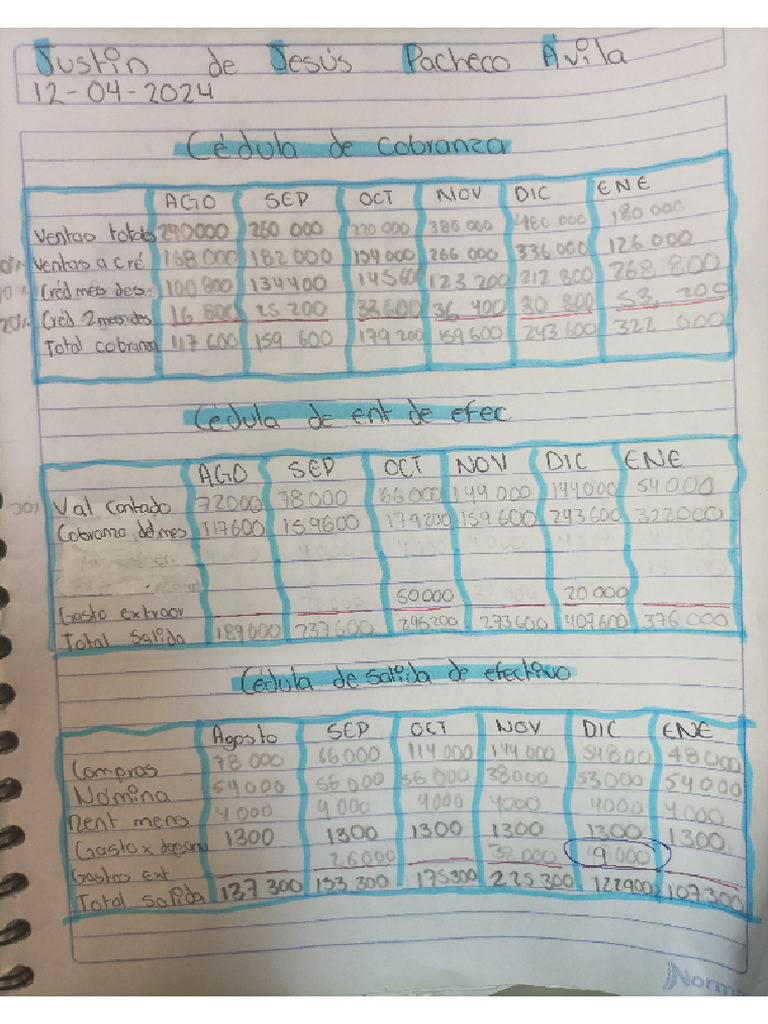 Justin de Jesús Pacheco Ávila
12-04-2024
Cédula de cobranza
AGO SEP OCT NOV DIC ENE
Ventas totales 240000 260 000 220 000 380 000 480 000 180 000
Ventas a cré 168 000 182 000 154 000 266 000 336 000 126 000
Créd mes des 100 800 134 400 145 600 123 200 212 800 268 800
20% Créd 2 mes des 16 800 25 200 33 600 36 400 30 800 53 200
Total cobranza 117 600 159 600 179 200 159 600 243 600 322 000
Cédula de ent de efec
AGO SEP OCT NOV DIC ENE
30% Val Contado 72000 78000 66 000 144 000 144000 54000
Cobranza del mes 117600 159600 179200 159 600 243 600 322000
50000 20 000
Gasto extraor
Total salida 189600 237600 295200 273600 407600 376 000
Cédula de salida de efectivo
Agosto SEP OCT NOV DIC ENE
Compras 78 000 66 000 114 000 144 000 54 800 48 000
Nomina 54 000 56 000 56 000 38000 53 000 54 000
Rent mens 4 000 4 000 4000 4000 4000 4 000
Gasto x 1300 1300 1300 1300 1300 1300
Gastos Ext 26000 32 000 9 000
Total salida 137 300 153 300 175300 225 300 122900 107 300
Norma